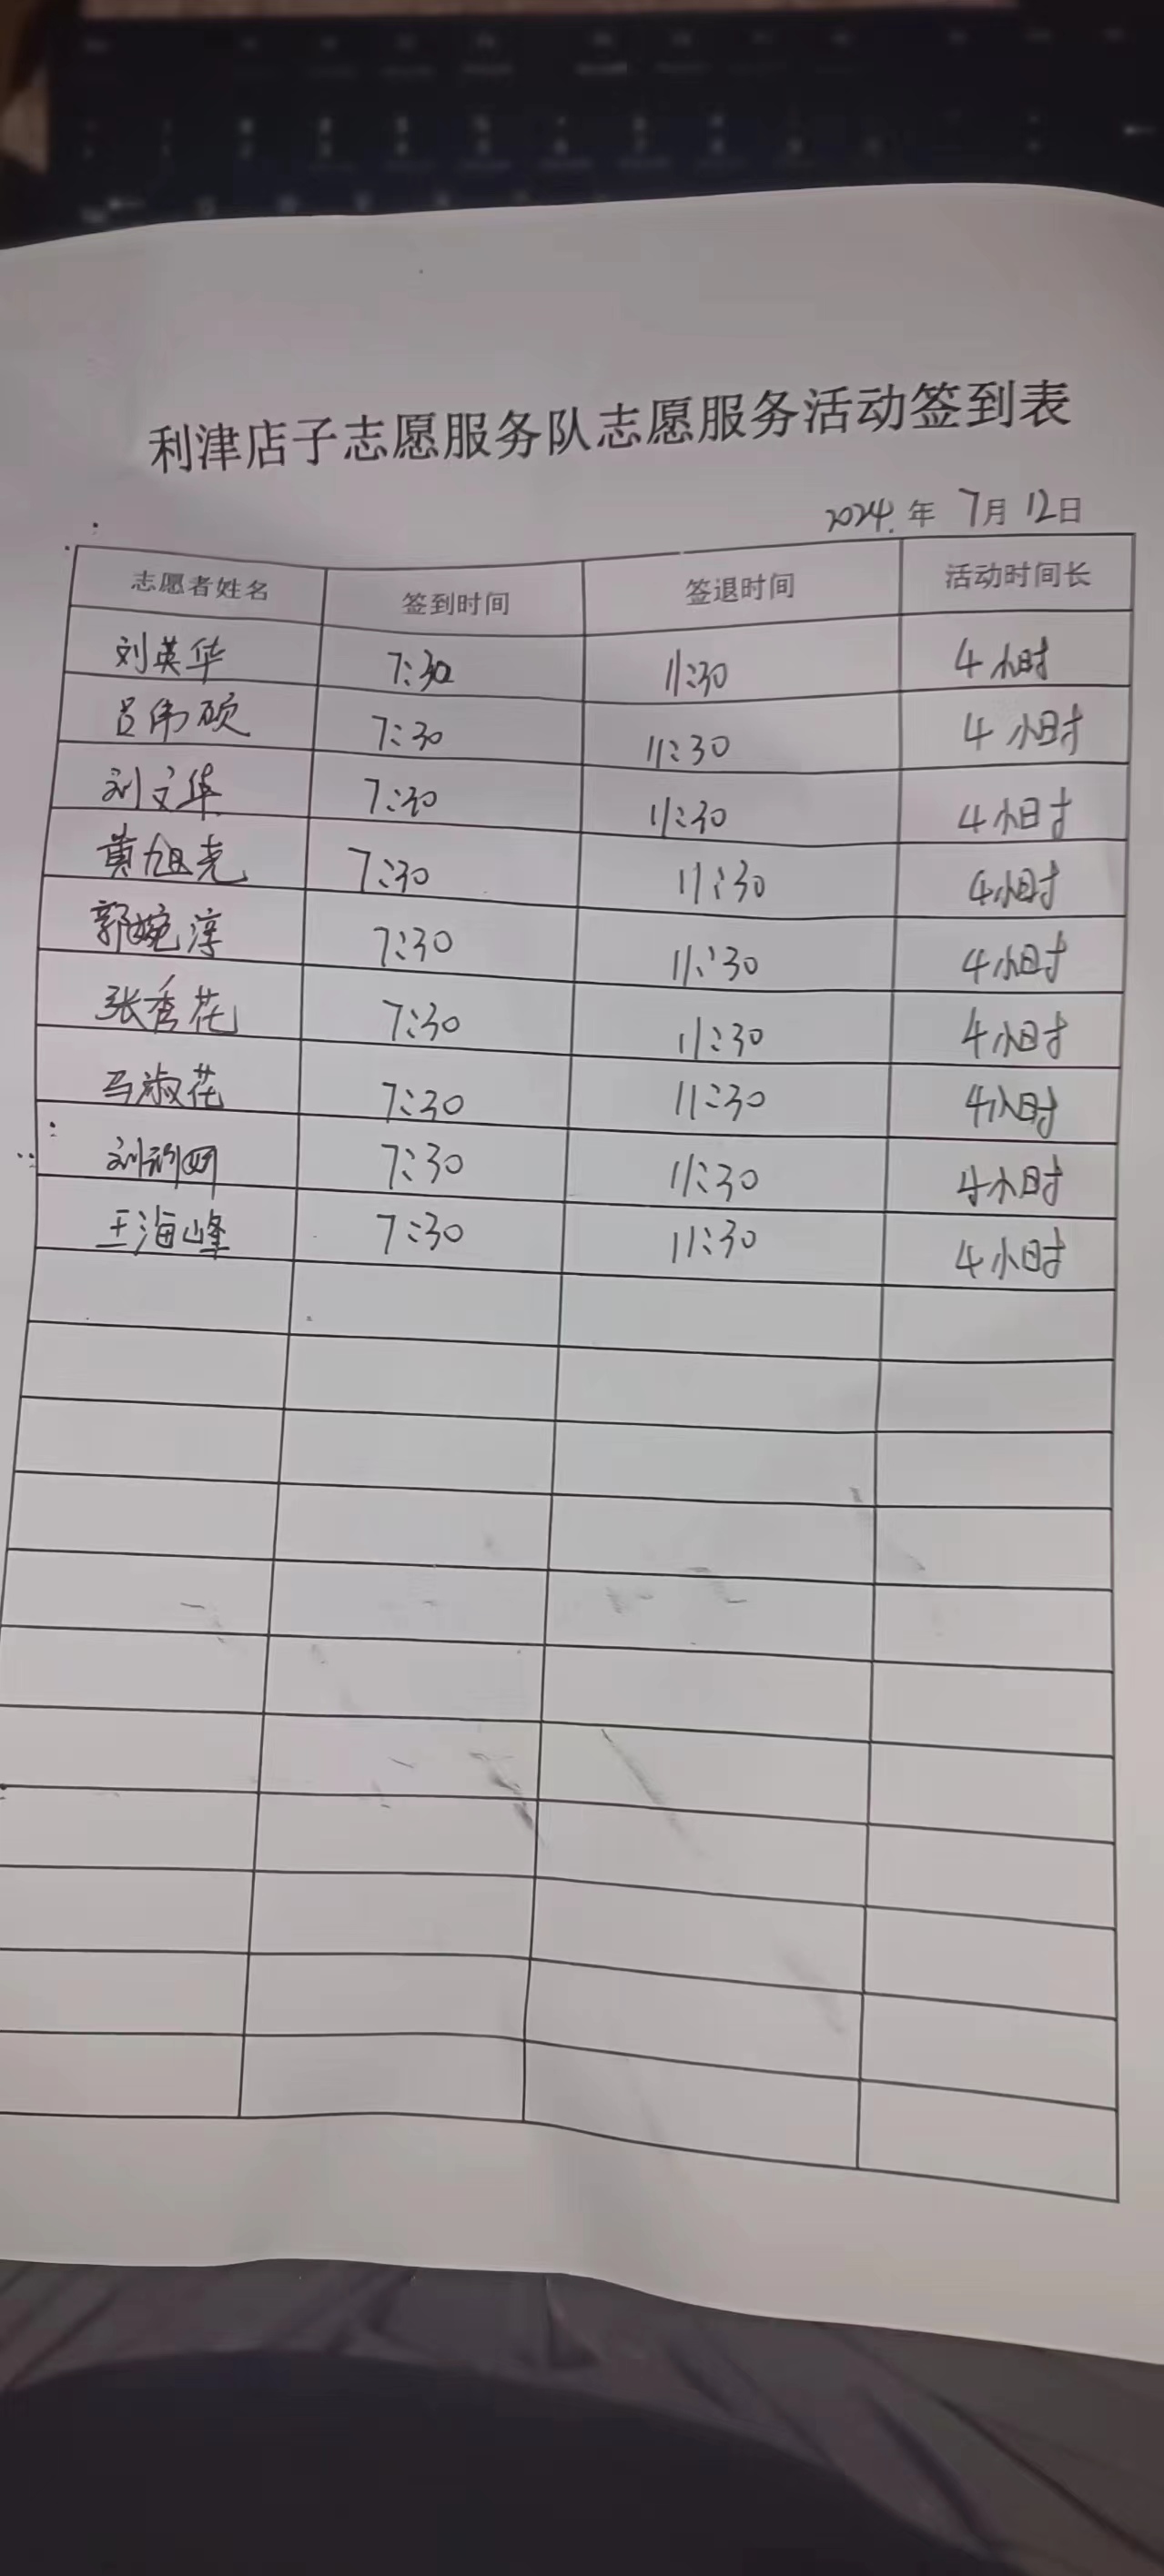 利津店子志愿服务队志愿服务活动签到表
2024.年 7月12日
志愿者姓名 签到时间 签退时间 活动时间长
刘英华 7:30 11:30 4小时
吕伟硕 7:30 11:30 4小时
刘文华 7:30 11:30 4小时
黄旭尧 7:30 11:30 4小时
郭婉淳 7:30 11:30 4小时
张秀花 7:30 11:30 4小时
马淑花 7:30 11:30 4小时
刘 7:30 11:30 4小时
王海峰 7:30 11:30 4小时